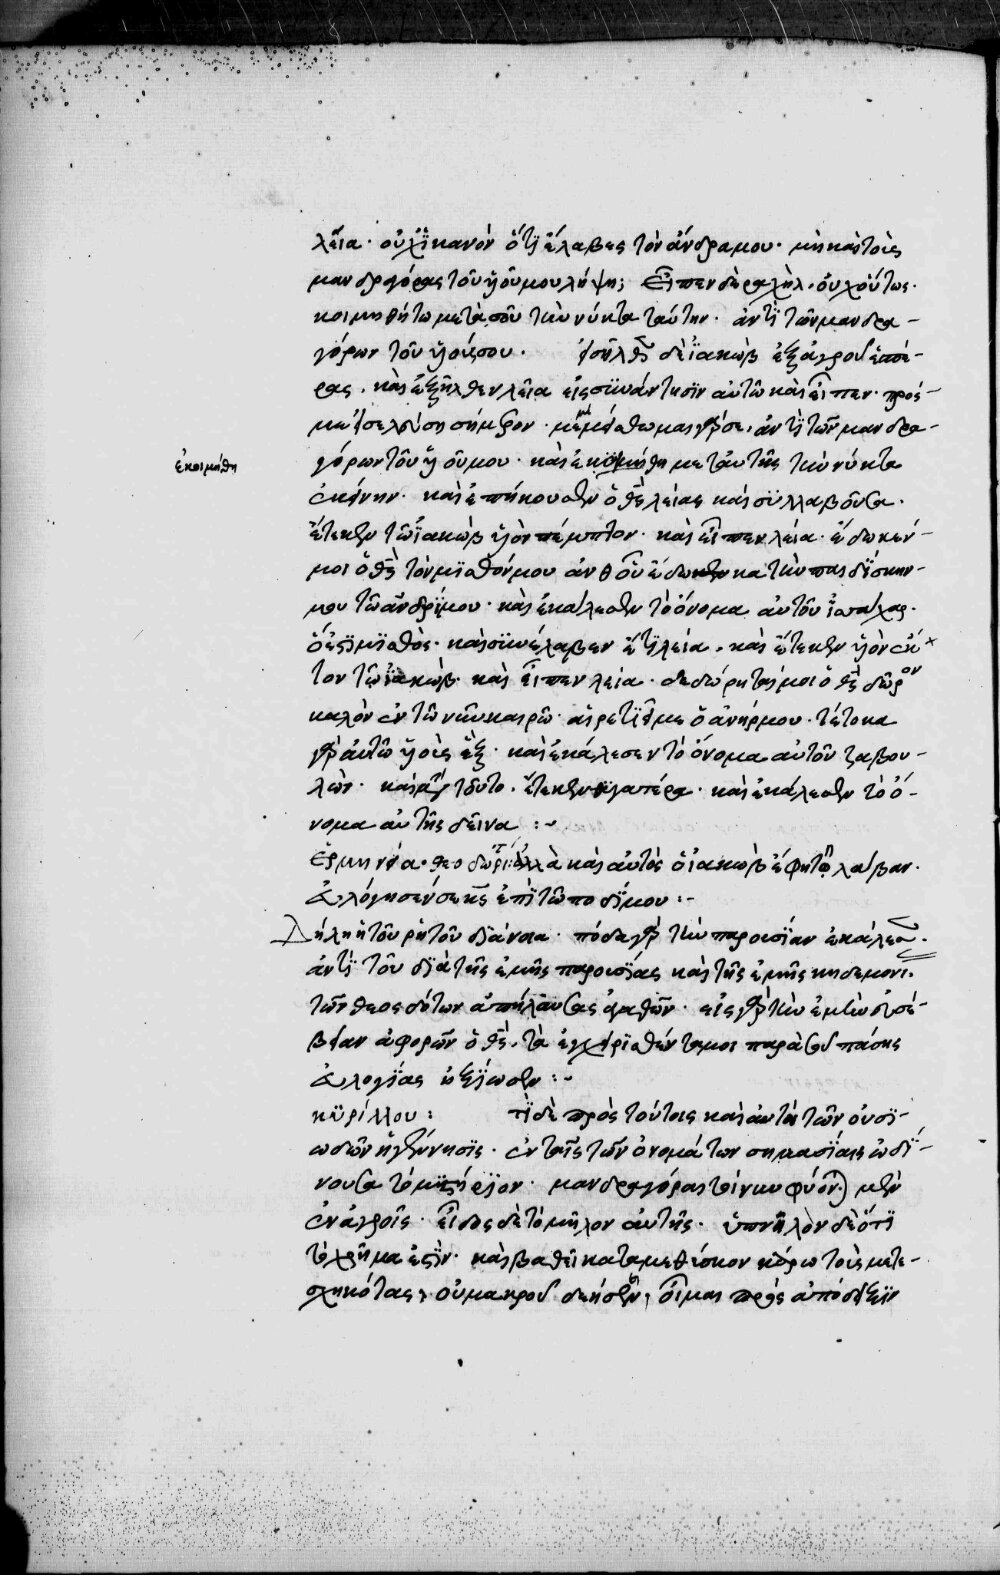 λεῖα· οὐχ ἱκανὸν ὅτι ἔλαβες τὸν ἄνδρα μου· μὴ καὶ τοὺς
μανδραγόρας τοῦ ὑοῦ μου λήψη; Εἶπεν δὲ ραχὴλ· οὐχ οὕτως·
κοιμηθήτω μετὰ σοῦ τὴν νύκτα ταύτην· ἀντὶ τῶν μανδρα-
γόρων τοῦ ὑοῦ σου· εἰσῆλθε δὲ ἰακὼβ ἐξ ἀγροῦ ἑσπέ-
ρας· καὶ ἐξῆλθεν λεῖα εἰς συνάντησιν αὐτῶ καὶ εἶπεν· πρός-
με εἰσελεύση σήμερον· μεμίσθωμαι γάρ σε, ἀντὶ τῶν μανδρα-
γόρων τοῦ ὑοῦ μου· καὶ ἐκοιμήθη μετ' αὐτῆς τὴν νύκτα
ἐκοιμήθη
ἐκείνην· καὶ ἐπήκουσεν ὁ θς λείας καὶ συλλαβοῦσα·
ἔτεκεν τῶ ἰακὼβ ὑὸν πέμπτον· καὶ εἶπεν λεία· ἔδωκέν-
μοι ὁ θς τὸν μισθόν μου ἀνθ οὗ ἔδωκα τὴν παιδίσκην-
μου τῶ ἀνδρί μου· καὶ ἐκάλεσεν τὸ ὄνομα αὐτοῦ ἰσάχαρ·
ὅ ἐστι μισθός· καὶ συνέλαβεν ἔτι λεία· καὶ ἔτεκεν ὑὸν ἕκ
τον τῶ ἰακὼβ· καὶ εἶπεν λεία· δεδώρηταί μοι ὁ θς δῶρον
καλὸν ἐν τῶ νῦν καιρῶ· αἱρετιεῖ με ὁ ἀνήρ μου· τέτοκα
γὰρ αὐτῶ ὑοὺς ἕξ· καὶ ἐκάλεσεν τὸ ὄνομα αὐτοῦ ζαβου-
λὼν· καὶ μετὰ τοῦτο· ἔτεκεν θυγατέρα· καὶ ἐκάλεσεν τὸ ὄ-
νομα αὐτῆς δεῖνα :-
Ἑρμηνεία· θεοδωρίτ: ἀλλὰ καὶ αὐτὸς ὁ ἰακὼβ ἔφη τῶ λάβαν·
εὐλόγησέν σε κς ἐπὶ τῶ ποδί μου :-
Δήλη ἡ τοῦ ῥητοῦ διάνοια· πόδα γὰρ τὴν παρουσίαν ἐκάλεσεν·
ἀντὶ τοῦ διὰ τῆς ἐμῆς παρουσίας καὶ τῆς ἐμῆς κηδεμονίας·
τῶν θεοσδότων ἀπήλαυσας ἀγαθῶν· εἰς γὰρ τὴν ἐμὴν εὐσέ-
βειαν ἀφορῶν ὁ θς, τὰ ἐγχειρισθέντα μοι παρὰ σοῦ πάσης
εὐλογίας ἠξίωσεν :-
κυρίλλου: τί δὲ πρὸς τούτοις καὶ αὐτὴ τῶν οὐσι-
ωδῶν ἡ γέννησις· ἐν ταῖς τῶν ὀνομάτων σημασίαις ὠδί-
νουσα τὸ μυστήριον· μανδραγόρας τοίνυν φύονται μὲν
ἐν ἀγροῖς· εἶδος δὲ τὸ μῆλον αὐτῆς· ὑπνηλὸν δὲ ὅτι
τὸ χρῆμα ἐστὶν· καὶ βαθεῖ καταμεθίσκον κάρω τοὺς μετε-
σχηκότας, οὐ μακροῦ δεήσειν, οἶμαι πρὸς ἀπόδειξιν